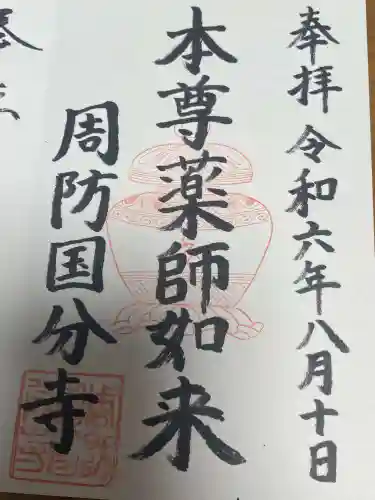 奉拝 令和六年八月十日
本尊薬師如来
周防国分寺